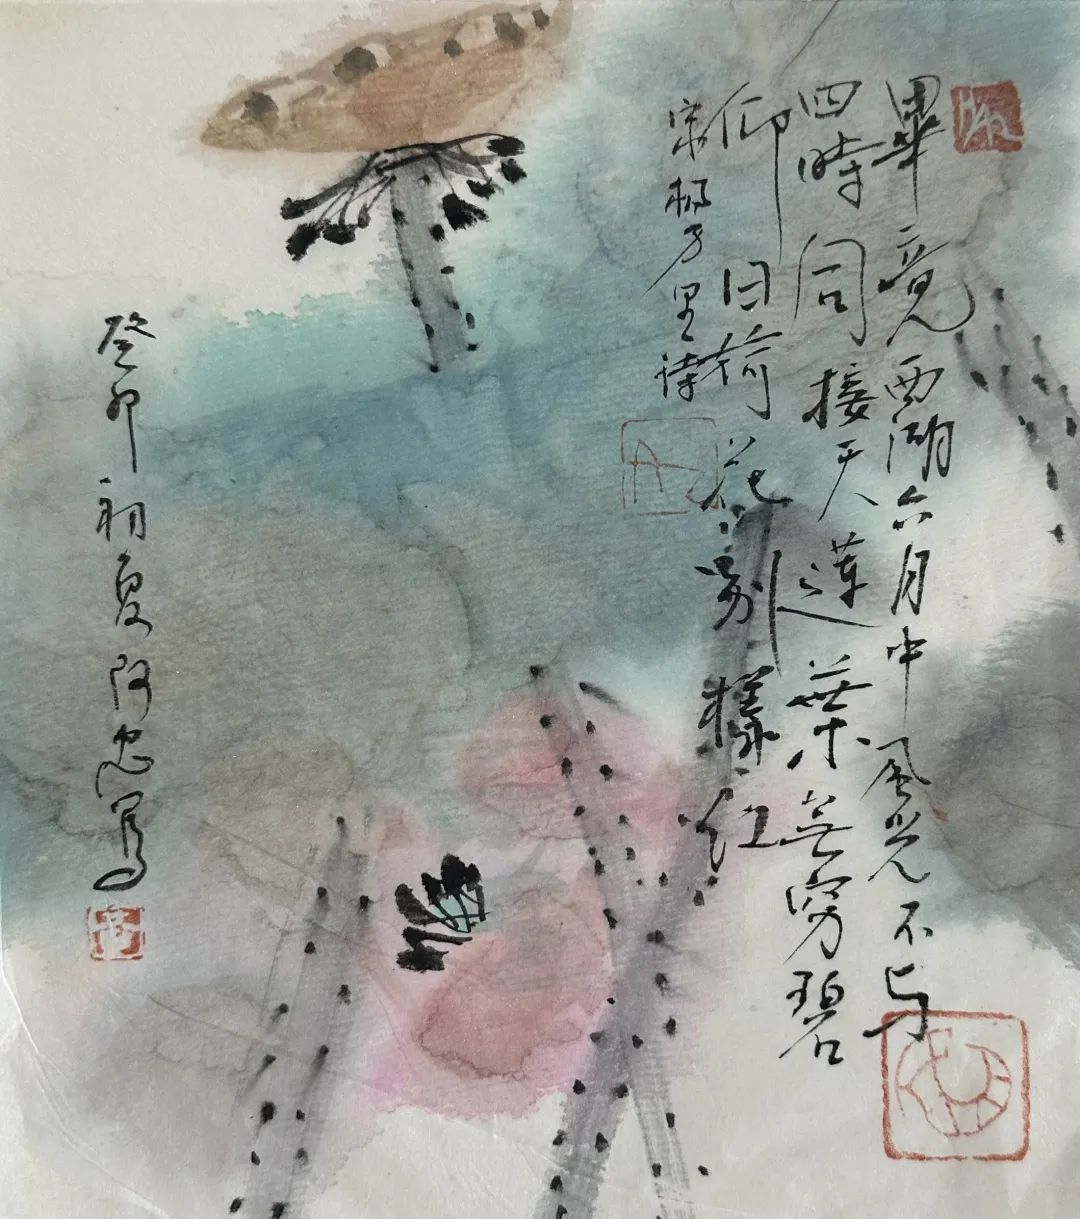 畢竟西湖六月中風光不与
四時同接天蓮葉無窮碧
仰日荷花別樣红
宋楊万里詩
癸卯初夏阿忠寫